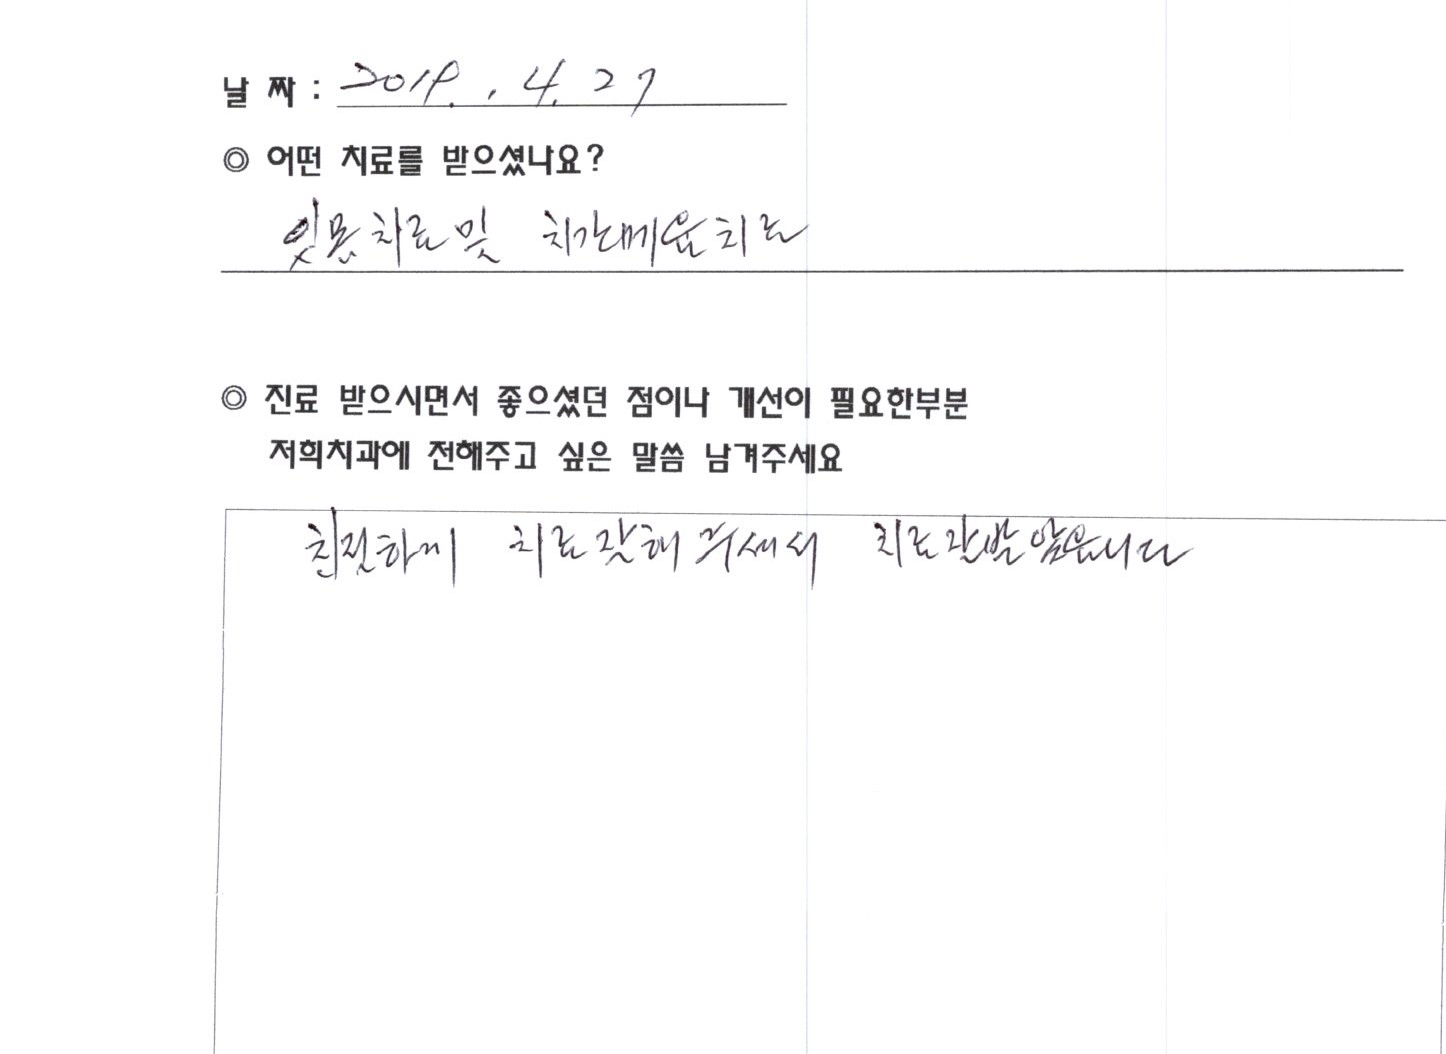 날 짜 : 2019. . 4. 27
◎ 어떤 치료를 받으셨나요?
잇몸치료및 치간메움치료
◎ 진료 받으시면서 좋으셨던 점이나 개선이 필요한부분
저희치과에 전해주고 싶은 말씀 남겨주세요
친절하게 치료잘해주셔서 치료잘받았읍니다